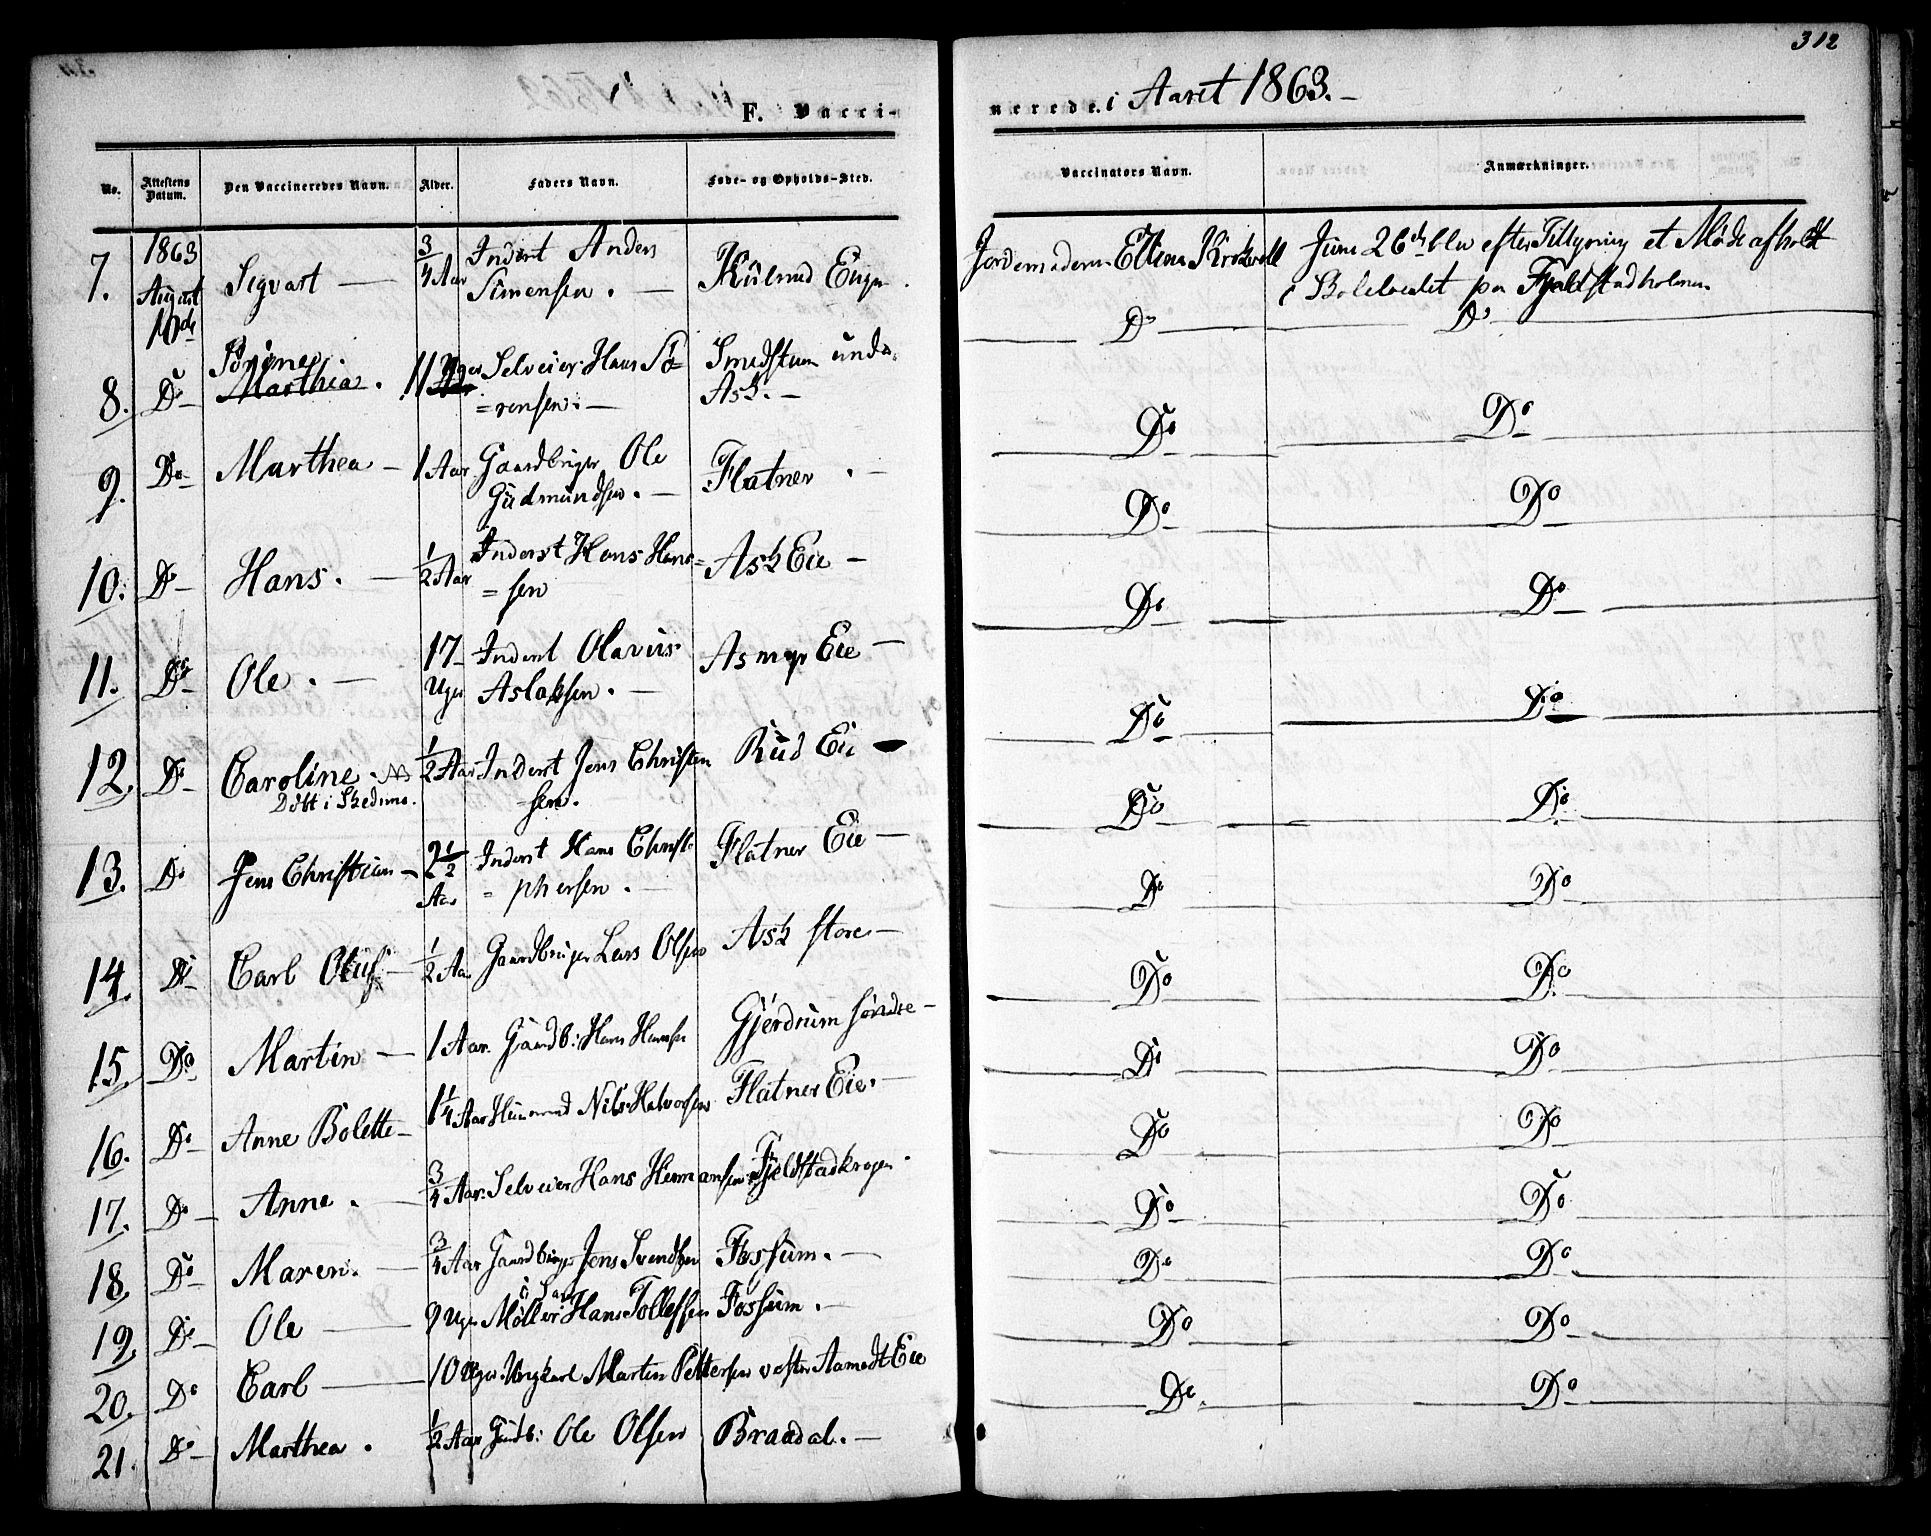 312
F. Vacci-
nerede. i Aaret 1863.-
No.
Attestens Datum.
Den Vaccineredes Navn.
Alder.
Faders Navn.
Føde- og Opholds-Sted.
Vaccinators Navn.
Anmærkninger.
7. 1863 August 10de Sigvart — 3/4 Aar Inderst Anders
Simensen. — Eiyn. Jordemoderen Juni 26de blev efter Tillysning et Møde afholdt
i Skolelocalet paa Fjeldstadholmen
Do — Do
8. Do Sørine. 11 Uger Selveier Hans Sø-
Marthea. =rensen. — Smedstuen under
Ask. —
Do Do
9. Do Marthea — 1 Aar Gaardbruger Ole
Gudmundsen. — Flatner. —
Do Do
10. Do Hans. — 1/2 Aar Inderst Hans Han=
=sen Ask Eie —
Do Do
11. Do Ole. — 17 Uger Inderst Olavus
Aslaksen. — Asmyr Eie —
Do Do
12. Do Caroline. 1/2 Aar Inderst Jens Christen
Døbt i Skedsmo. =sen. Rud Eie —
Do Do
13. Do Jens Christian — 2 1/2 Aar Inderst Hans Christ-
=phersen. — Flatner Eie —
Do Do
14. Do Carl Oluf — 1/2 Aar Gaardbruger Lars Olsen Ask store —
Do Do
15. Do Martin — 1 Aar. Gaardb: Hans Hansen Gjerdrum søndre —
Do Do
16. Do Anne Bolette — 1 1/4 Aar Huusmand Nils Halvorsen Flatner Eie. —
Do Do
17. Do Anne. — 3/4 Aar. Selveier Hans Hermansen Fjeldstadkrogen.
Do Do
18. Do Maren. — 3/4 Aar Gaardbruger Jens Svendsen Fossum. —
Do Do
19. Do Ole — 9 Uger Møller Hans Tollefsen Fossum. —
Do Do
20. Do Carl — 10 Uger Ungkarl Martin Pettersen Aamodt Eie
Do Do
21. Do Marthea. 1/2 Aar Gaardb: Ole Olsen Braadal. —